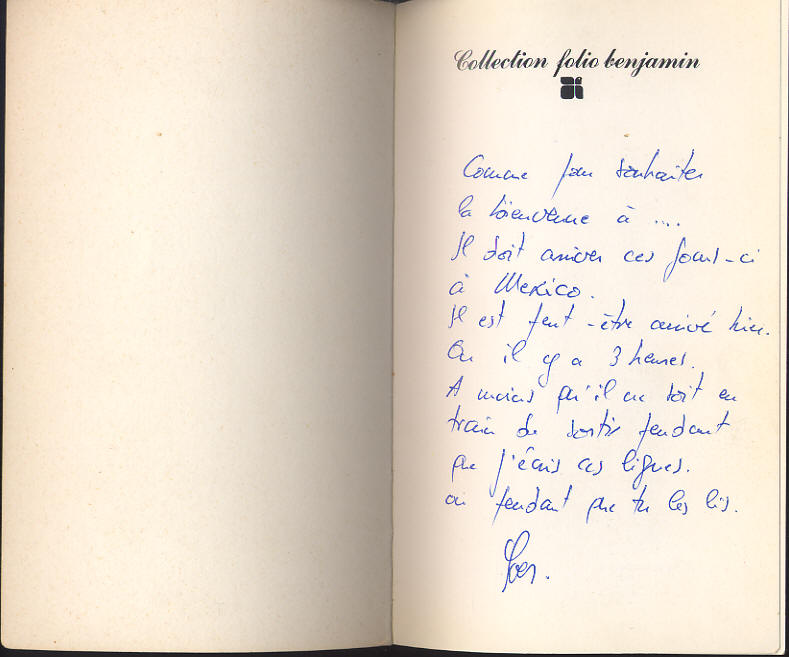 Collection folio benjamin
Comme pour souhaiter
la bienvenue à ....
Il doit arriver ces jours-ci
à Mexico.
Il est peut-être arrivé hier.
Ou il y a 3 heures.
A moins qu'il ne soit en
train de sortir pendant
que j'écris ces lignes.
ou pendant que tu les lis.
Yves.